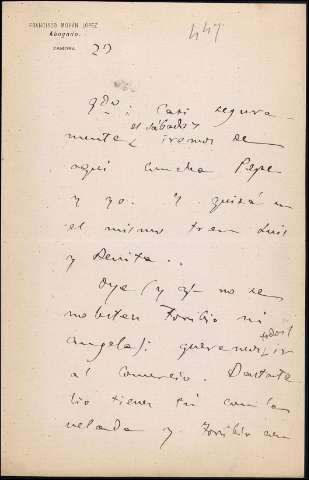 FRANCISCO MORÁN LÓPEZ
Abogado.
ZAMORA
447
22
qdo: Casi segura-
el sábado
mente, iremos de
aquí Concha Pepe
y yo. Y quizá en
el mismo tren Luis
y Benita..
Oye (y que no se
molesten Toribio ni
Angela): queremos ir todos
al Comercio.
tío tienes tú con la
velada y Toribio